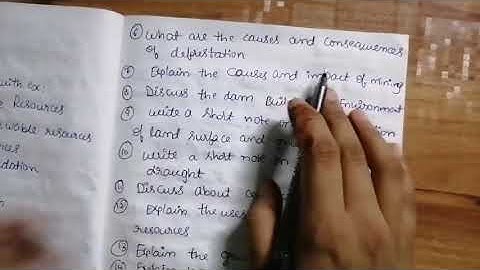 with ex:
Resources
wable resources
ces
dation
⑥ What are the causes and consequences
of deforstation
⑦ Explain the causes and impact of mining
⑧ Discuss the dam Buil Environment
⑨ write a short note on tion
of land surface and
⑩ write a short note on
draught
⑪ Discuss about co
⑫ Explain the uses
resources
⑬ Explain the
⑭ Explain